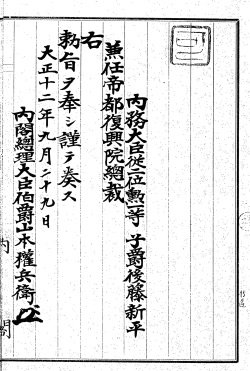 内務大臣從二位勲一等子爵後藤新平
兼任帝都復興院總裁
右
勅旨ヲ奉シ謹テ奏ス
大正十二年九月二十九日
内閣總理大臣伯爵山本權兵衛
内閣